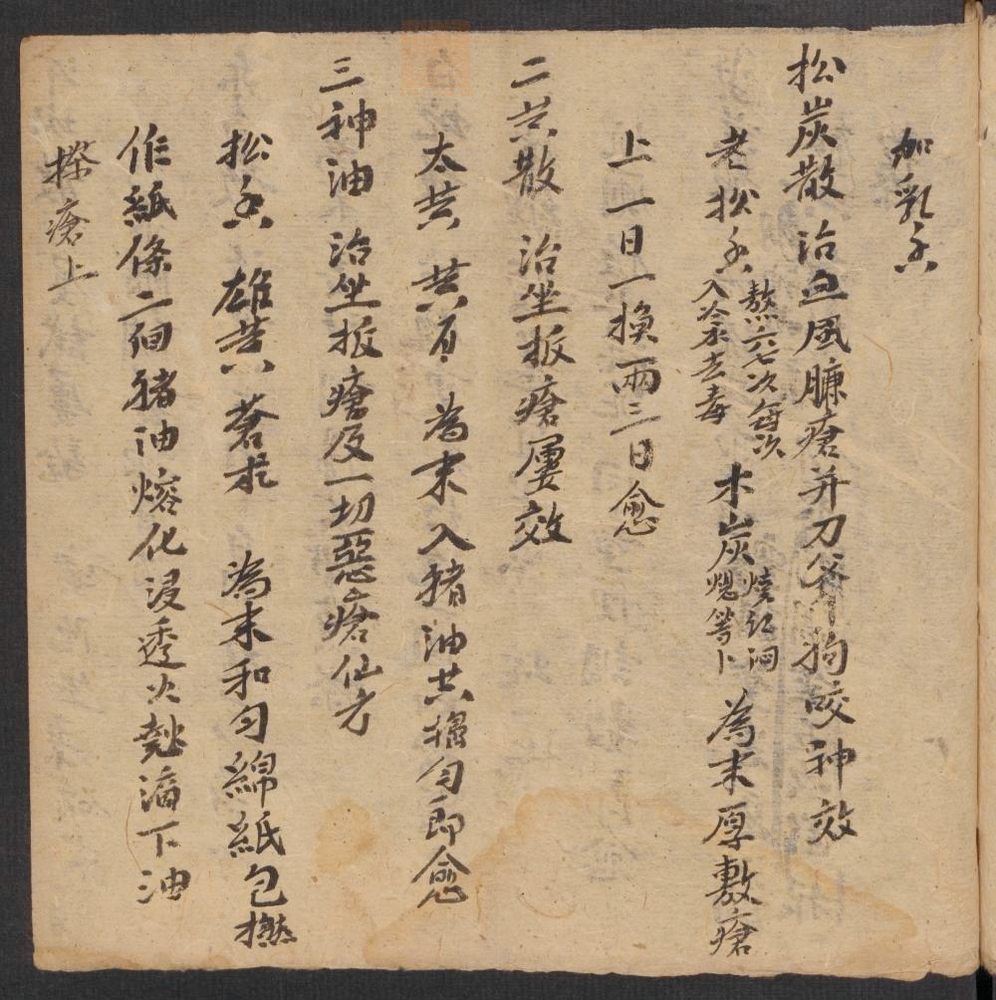 加乳香
松炭散 治血風臁瘡并刀斧狗咬神效
老松香 熬六七次每次入冷水去毒 木炭 燒紅 為末厚敷瘡
上一日一換兩三日愈
二黃散 治坐板瘡屢效
太黃 黃 為末入猪油共擣匀即愈
三神油 治坐板瘡及一切惡瘡仙方
松香 雄黃 蒼朮 為末和匀綿紙包撚
作紙條二個猪油熔化浸透火㸃滴下油
搽瘡上